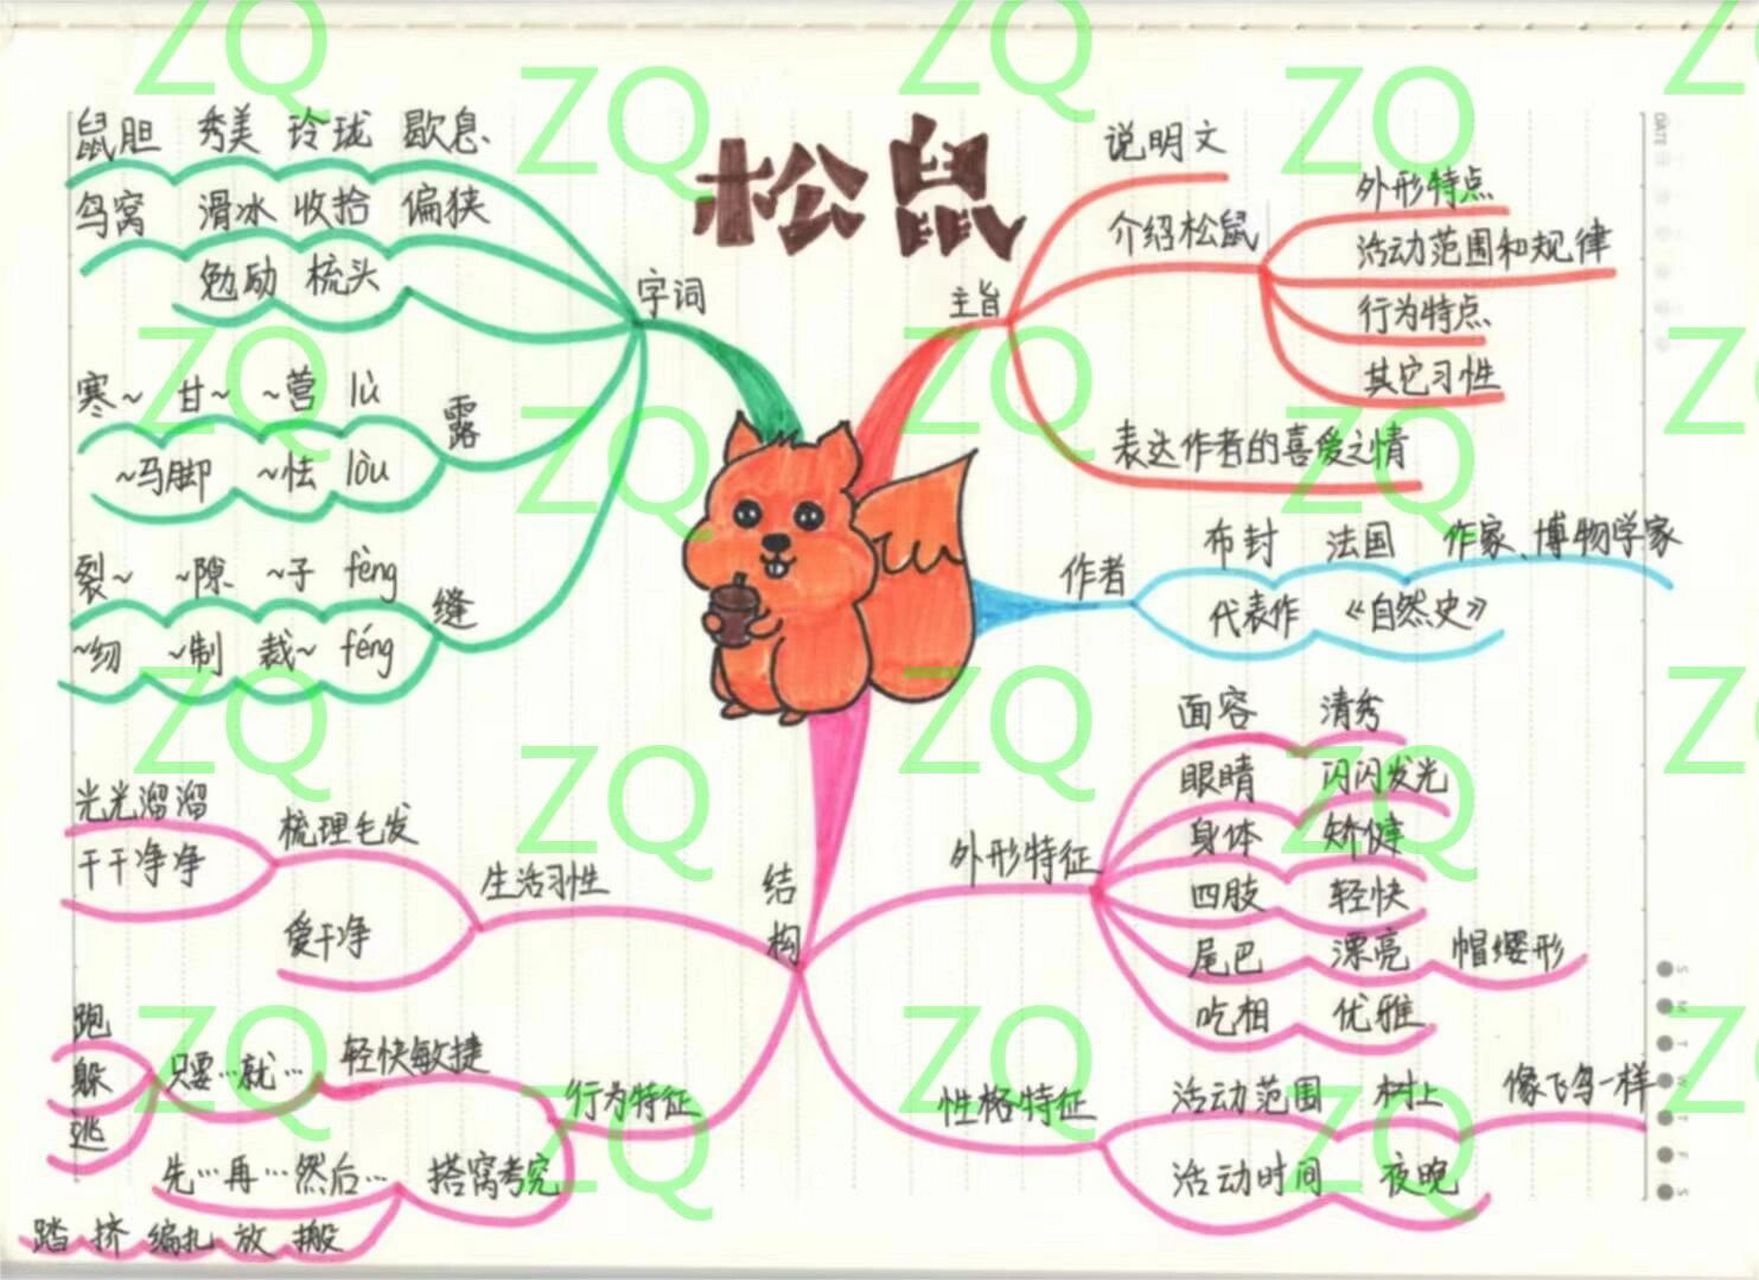 松鼠
字词
鼠胆 秀美 玲珑 歇息
鸟窝 滑冰 收拾 偏狭
勉励 梳头
露
寒~ 甘~ ~营 lù
~马脚 ~怯 lòu
缝
裂~ ~隙 ~子 fèng
~纫 ~制 裁~ féng
主旨
说明文
介绍松鼠
外形特点
活动范围和规律
行为特点
其它习性
表达作者的喜爱之情
作者
布封 法国 作家、博物学家
代表作 《自然史》
结构
外形特征
面容 清秀
眼睛 闪闪发光
身体 矫健
四肢 轻快
尾巴 漂亮 帽缨形
吃相 优雅
性格特征
活动范围 树上 像飞鸟一样
活动时间 夜晚
生活习性
梳理毛发
光光溜溜
干干净净
爱干净
行为特征
轻快敏捷
只要…就…
跑
躲
逃
搭窝考究
先…再…然后…
踏 挤 编扎 放 搬
DATE
S
M
T
W
T
F
S
ZQ ZQ ZQ ZQ ZQ
ZQ ZQ ZQ ZQ ZQ
ZQ ZQ ZQ ZQ ZQ
ZQ ZQ ZQ ZQ ZQ